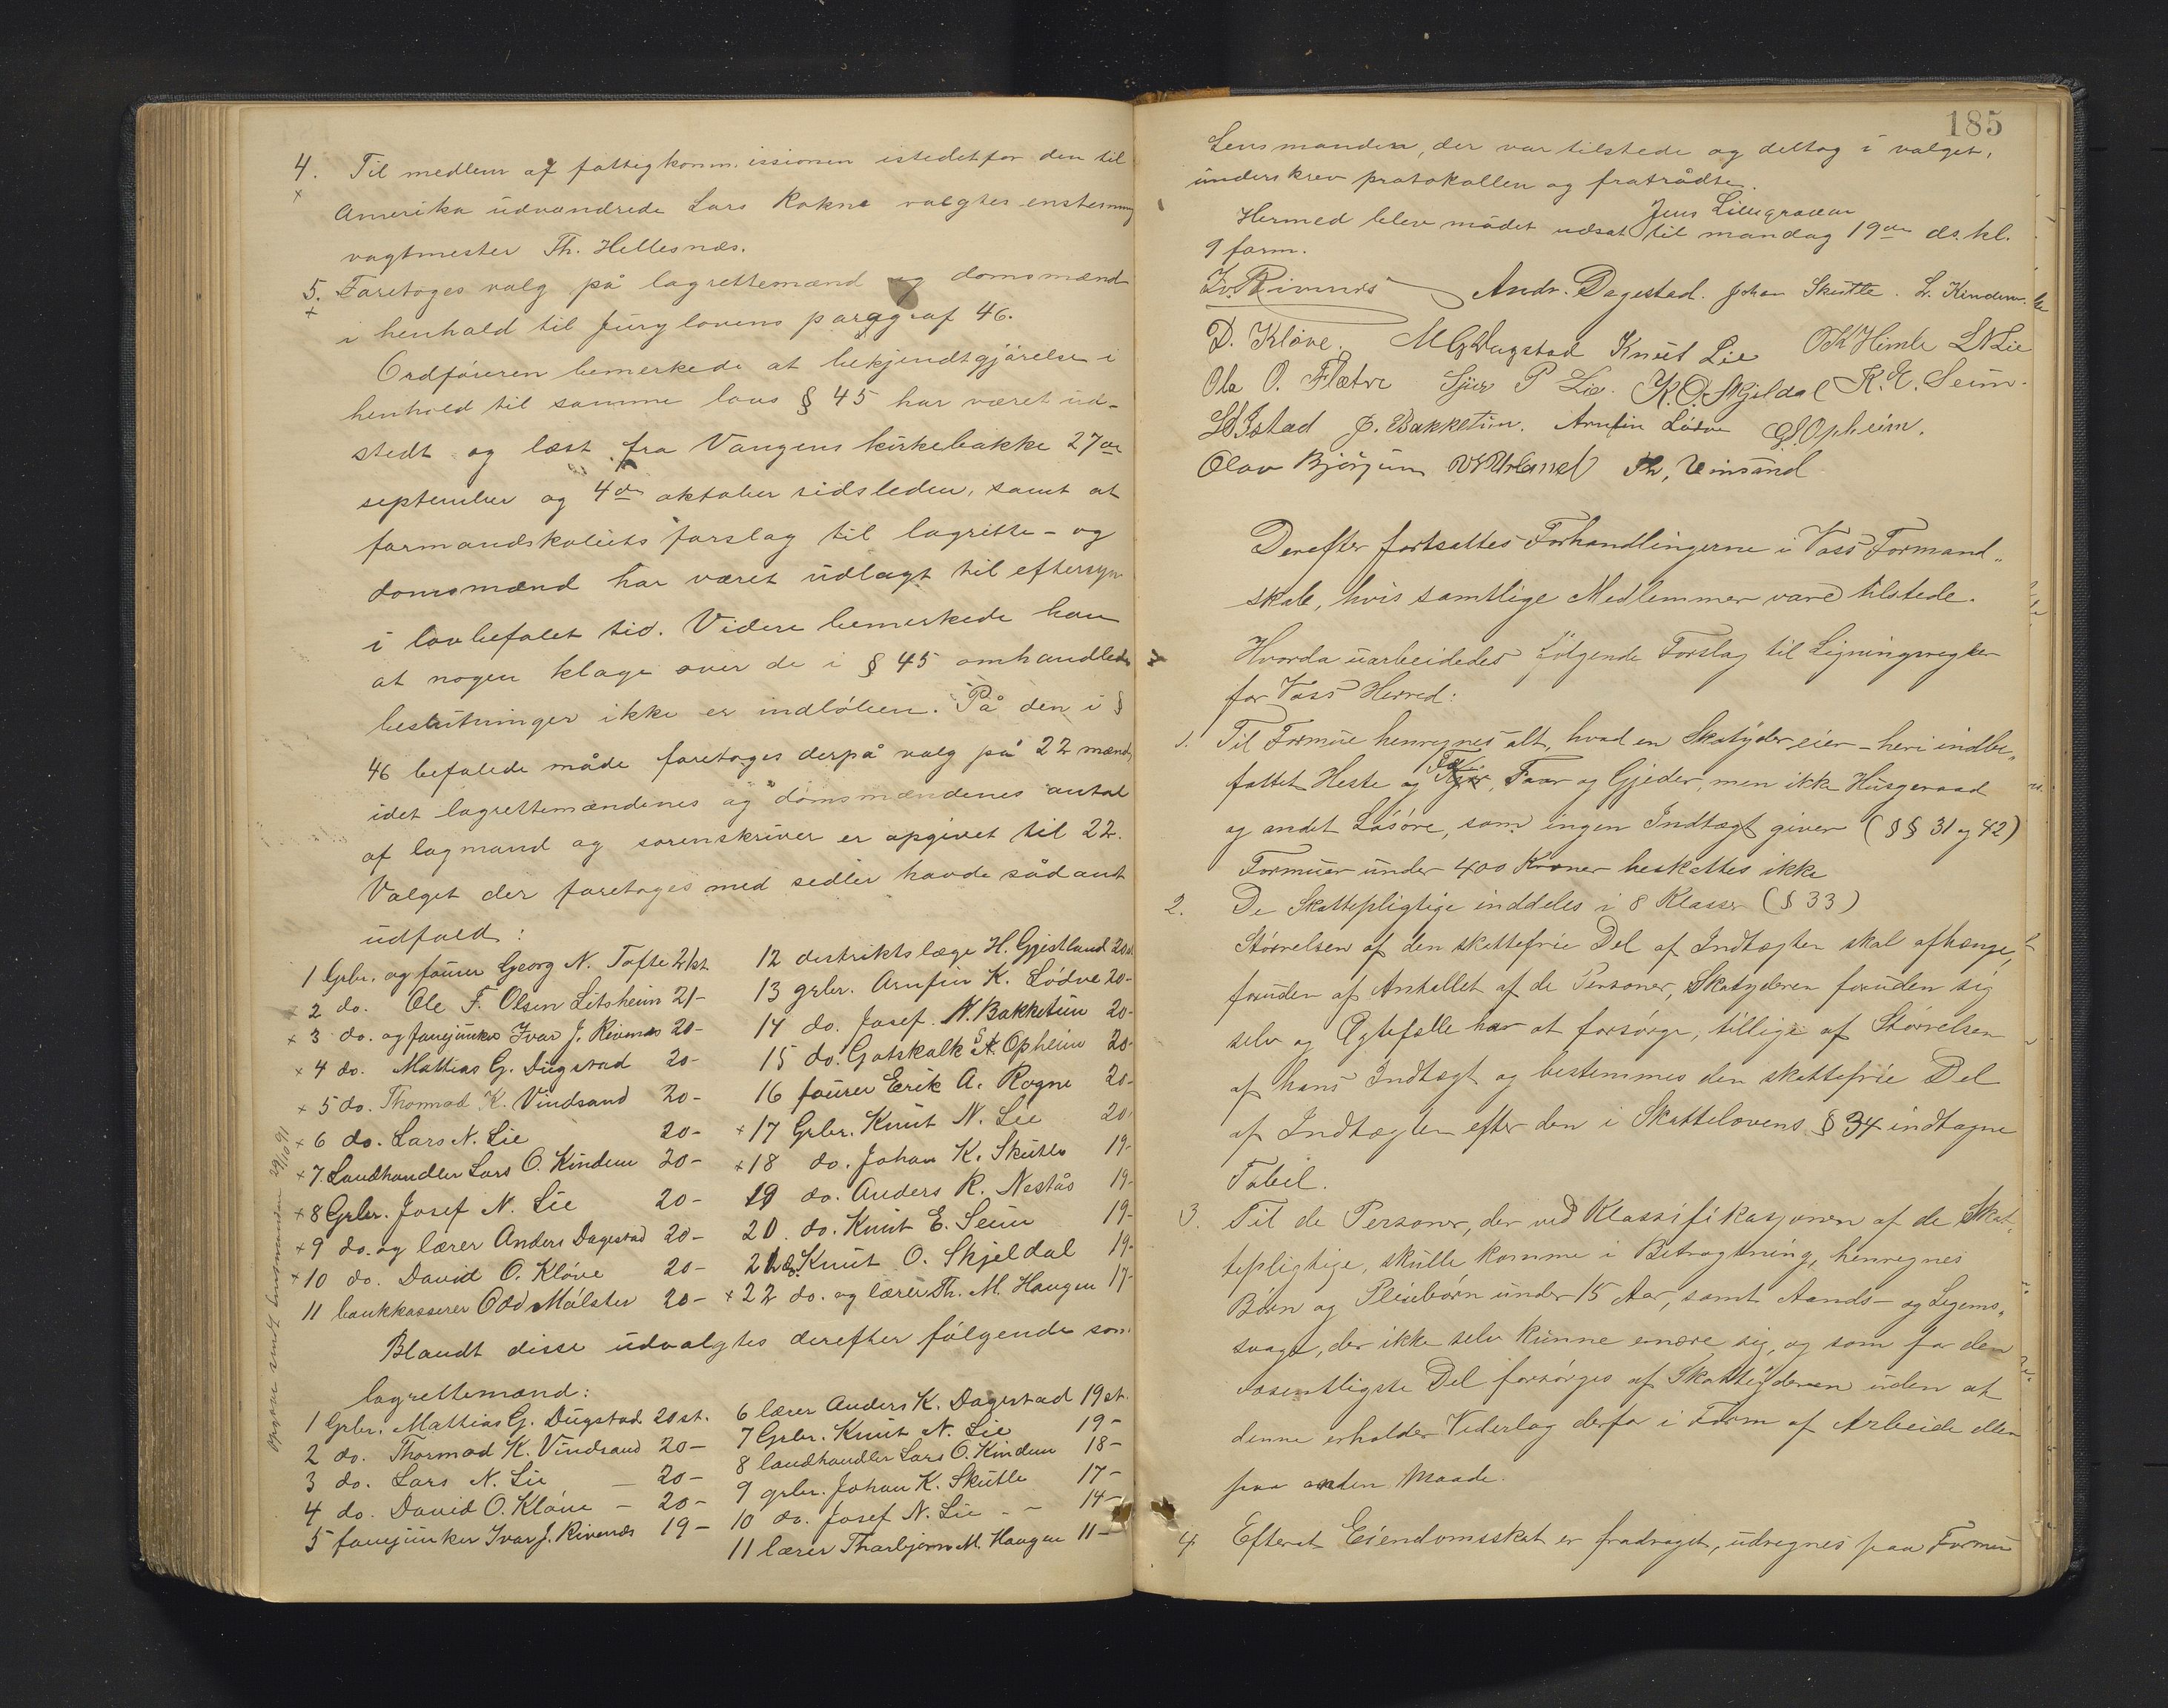 4. Til medlem af fattigkommissionen istedetfor den til
Amerika udvandrede Lars Rokne valgtes enstemmig
vagtmester Th. Hellesnæs.
5. Foretoges valg på lagrettemænd og domsmænd
i henhold til Jurylovens paragraf 46.
Ordføreren bemerkede at bekjendtgjörelse i
henhold til samme lovs § 45 har været ud-
stedt og læst fra Vangens kirkebakke 27de
september og 4de oktober sidsleden, samt at
formandskabets forslag til lagrette- og
domsmænd har været udlagt til eftersyn
i lovbefalet tid. Videre bemerkede han
at nogen klage over de i § 45 omhandlede
beslutninger ikke er indløben. På den i §
46 befalede måde foretoges derpå valg på 22 mænd,
idet lagrettemændenes og domsmændenes antal
af lagmand og sorenskriver er opgivet til 22.
Valget der foretoges med sedler havde sådant
udfald:
1 Grbr. og fourer Georg N. Tofte 21 st.
2 do. Ole F. Olsen Litsheim 21-
3 do. og fanejunker Ivar J. Rivenæs 20-
4 do. Mattias G. Dugstad 20-
5 do. Thormod K. Vindsand 20-
6 do. Lars N. Lie 20-
7 Landhandler Lars O. Kindem 20-
8 Grbr. Josef N. Lie 20-
9 do. og lærer Anders Dagestad 20-
10 do. David O. Klöve 20-
11 bankkasserer Odd Mølster 20-
12 destriktslæge H. Gjistland 20 st
13 grbr. Arnfin K. Lødve 20-
14 do. Josef N. Bakketun 20-
15 do. Gotskalk S. Opheim 20-
16 fourer Eerik A. Rogne 20-
17 Grbr. Knut N. Lie 20-
18 do. Johan K. Skutle 19-
19 do. Anders R. Nestås 19-
20. do. Knut E. Seim 19-
21 do. Knut O. Skjeldal 19-
22 do. og lærer Th. M. Haugen 17-
Blandt disse udvalgtes derefter følgende som
lagrettemænd:
1 Grbr. Mattias G. Dugstad 20 st.
2 do. Thormod K. Vindsand 20-
3 do. Lars N. Lie - 20-
4 do. David O. Klöve - 20-
5 fanejunker Ivar J. Rivenæs 19-
6 lærer Anders K. Dagestad 19 st.
7 Grbr. Knut N. Lie 19-
8 landhandler Lars O. Kindem 18-
9 grbr. Johan K. Skutle 17-
10 do. Josef N. Lie - 14-
11 lærer Thorbjørn M. Haugen 11-
lensmanden 29/10 91
185
Lensmanden, der var tilstede og deltog i valget,
underskrev protokollen og fratrådte.
Jens Lillegraven
Hermed blev mödet udsat til mandag 19de ds. kl.
9 form.
Iv. Rivenæs Andr. Dagestad. Johan Skutle. L. Kindem.
D. Klöve. M G Dugstad Knut Lie O K Himle L N Lie
Ole O. Flatve Sjur P Lie. K. O. Skjeldal K. E. Seim.
J. Bakketun. Arnfin Lödve G. S. Opheim.
Olav Bjørgum Th. Vinsand
Derefter fortsattes Forhandlingerne i Voss Formand-
skab, hvis samtlige Medlemmer vare tilstede.
Hvorda uarbeidedes følgende Forslag til Ligningsregler
for Voss Herred:
1. Til Formue henregnes alt, hvad en Skatyder eier – heri indbe-
fattet Heste og Kjør, Faar og Gjeder, men ikke Husgeraad
og andet Løsøre, som ingen Indtægt giver (§§ 31 og 42)
Formuer under 400 Kroner beskattes ikke
2. De Skattepligtige inddeles i 8 Klasser (§ 33)
Størrelsen af den skattefrie Del af Indtægten skal afhænge,
foruden af Antallet af de Personer, Skatyderen foruden sig
selv og Ægtefælle har at forsörge, tillige af Størrelsen
af hans Indtægt og bestemmes den skattefrie Del
af Indtægten efter den i Skattelovens § 34 indtagne
Tabel.
3. Til de Personer, der ved Klassifikasjonen af de Skat-
tepligtige, skulle komme i Betragtning, henregnes
Børn og Pleiebörn under 15 Aar, samt Aands- og Legems-
svage, der ikke selv kunne ernære sig, og som for den
væsentligste Del forsörges af Skatteyderen uden at
denne erholder Vederlag derfor i Form af Arbeide eller
paa anden Maade.
4. Efterat Eiendomsskat er fradraget, udregnes paa Formue